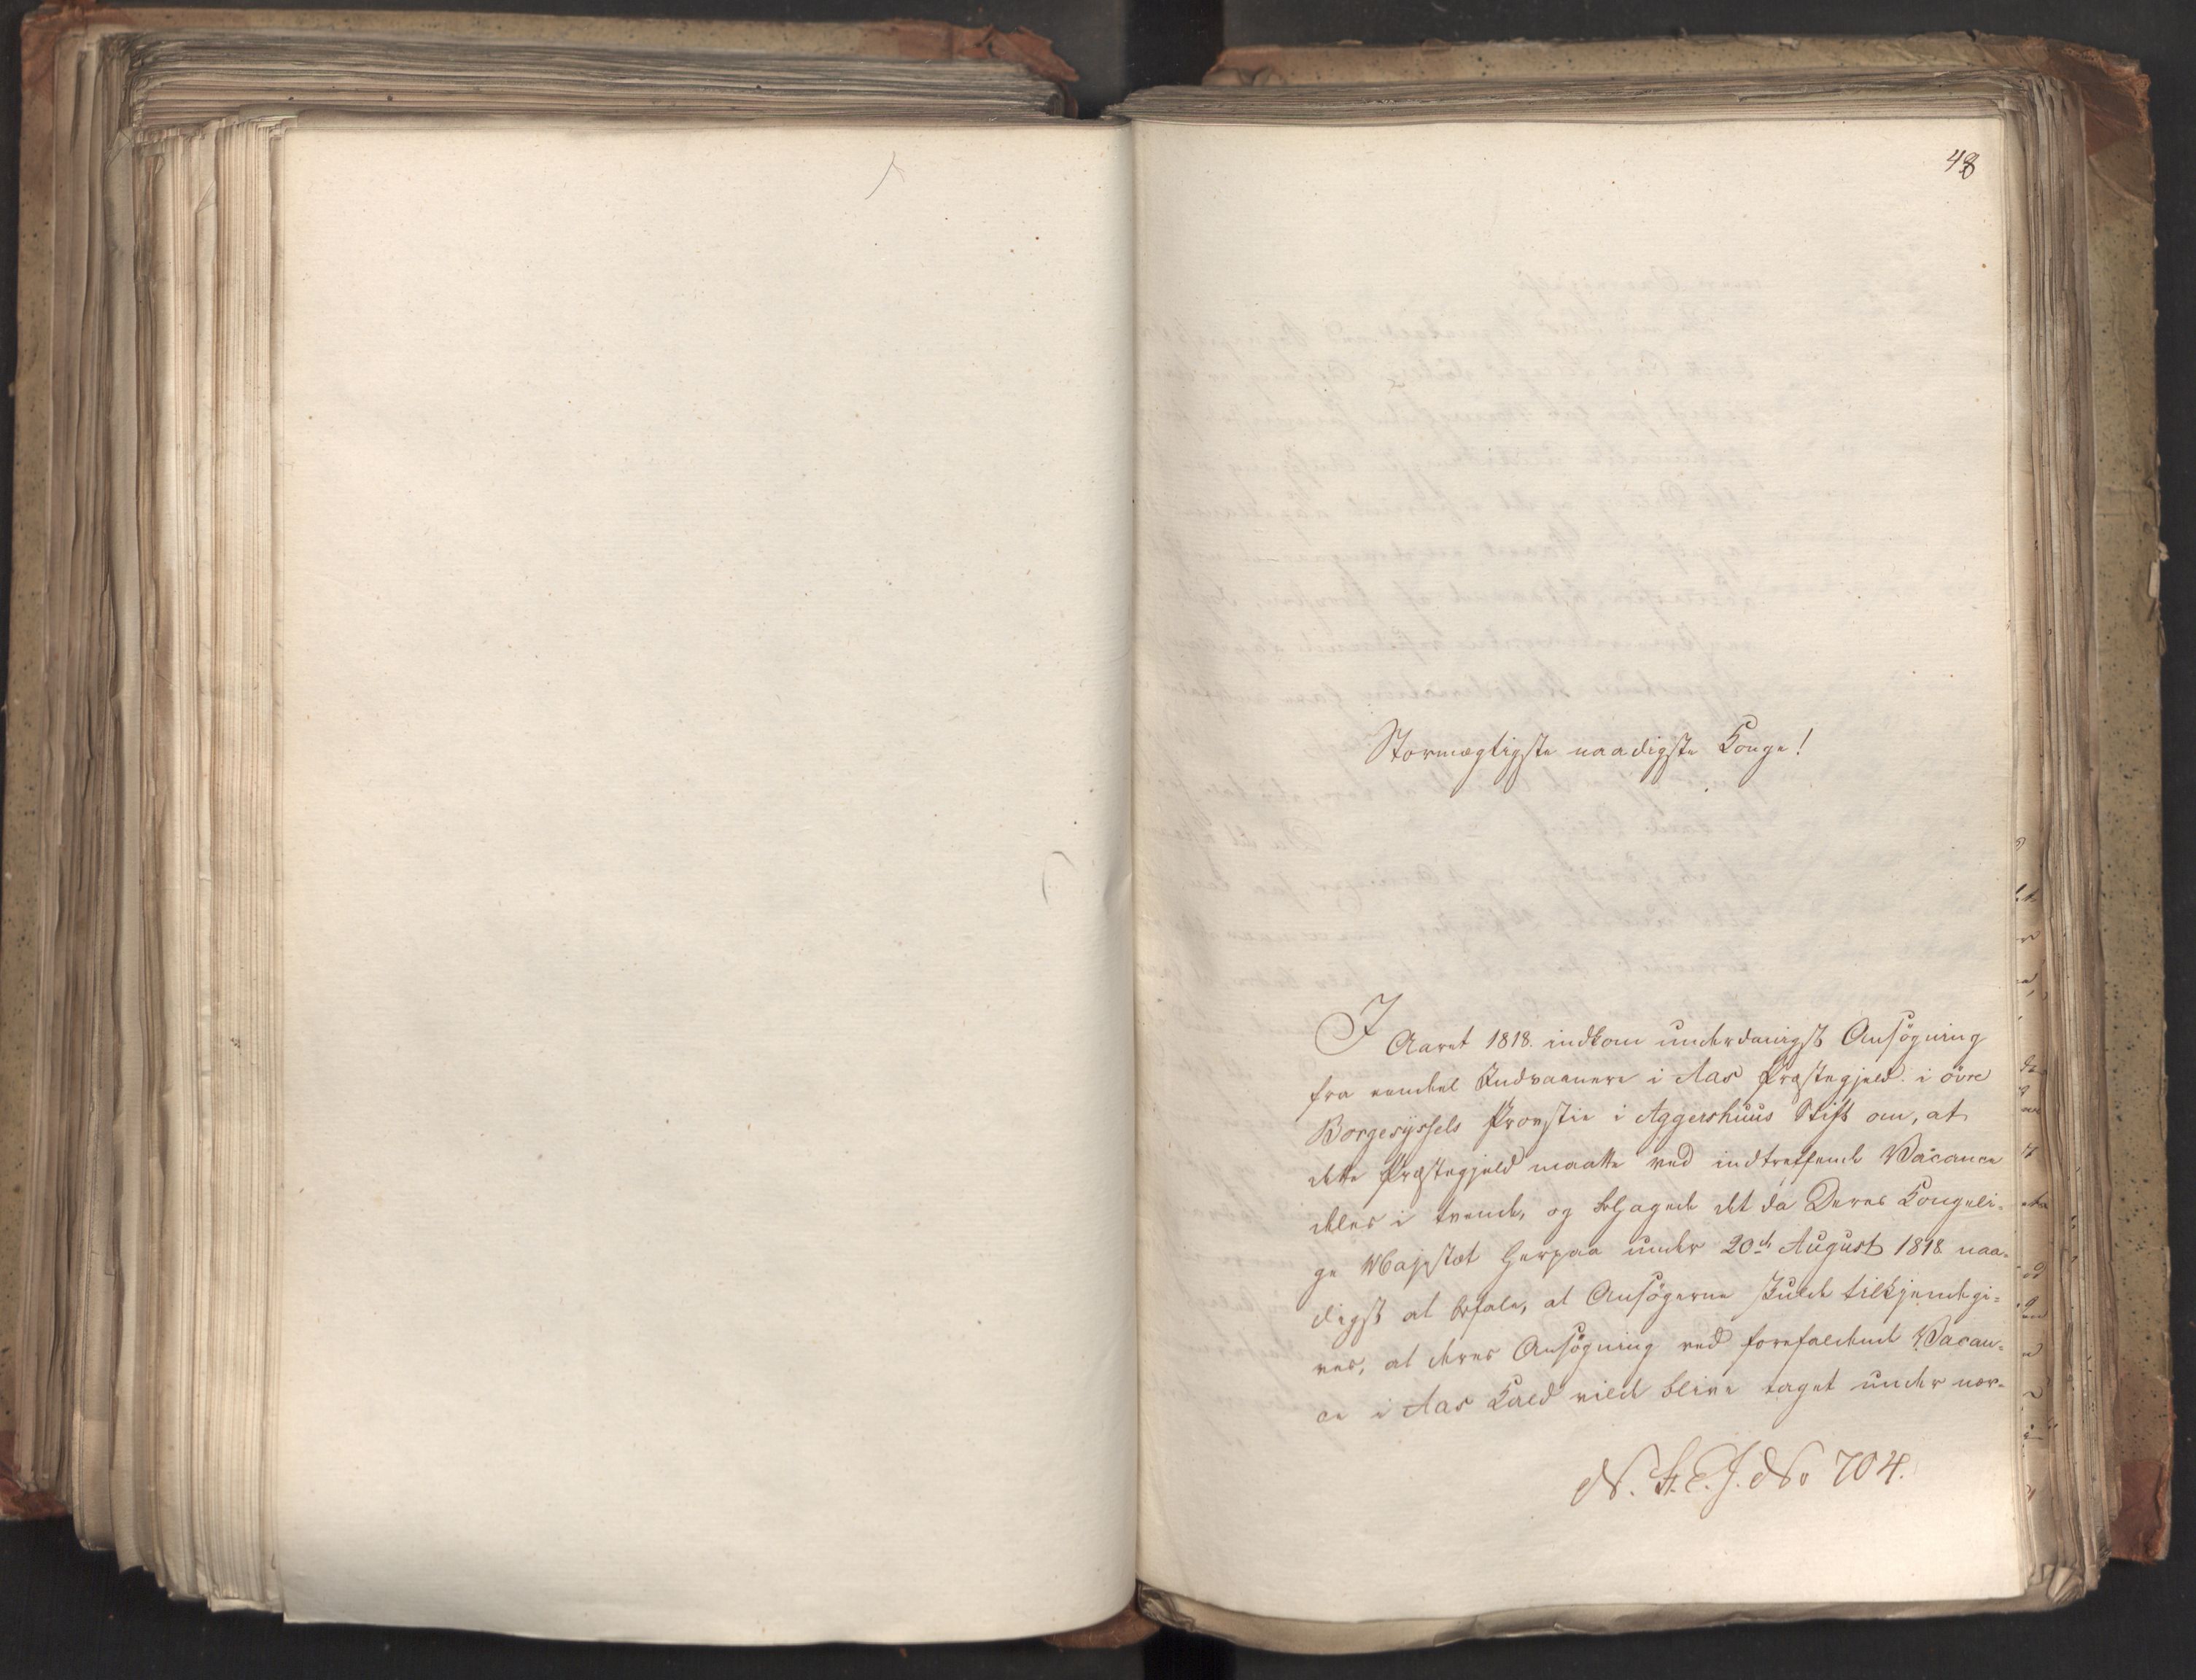 48
Stormægtigste naadigste Konge!
I Aaret 1818 indkom underdanigst Ansøgning
fra eendeel Indvaanere i Aas Præstegjeld i övre
Borgesyssels Provstie i Aggershuus Stift om, at
dette Præstegjeld maatte ved indtreffende Vacance
deles i tvende, og behagede det da Deres Kongeli-
ge Majestæt herpaa under 20de August 1818 naa-
digst at befale, at Ansøgerne skulde tilkjendegi-
ves, at deres Ansøgning ved forefaldende Vacan-
ce i Aas Kald vilde blive taget under nær-
N. St. E. J. No 704.